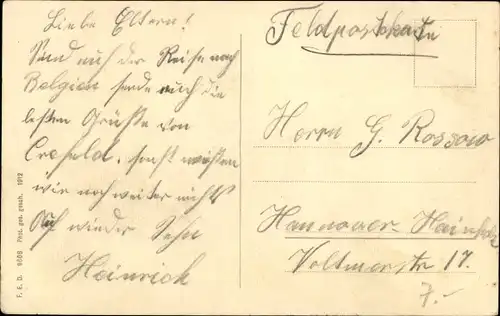 Liebe Eltern!
Sind auf der Reise nach
Belgien sende euch die
besten Grüße von
Crefeld, sonst wissen
wir noch weiter nichts
Auf wieder Sehn
Heinrich
Feldpostkarte
Herrn G. Rossow
Hannover-Hainholz
Voltmerstr 17.
7.-
F. E. D. 9608 Phot. ges. gesch. 1912